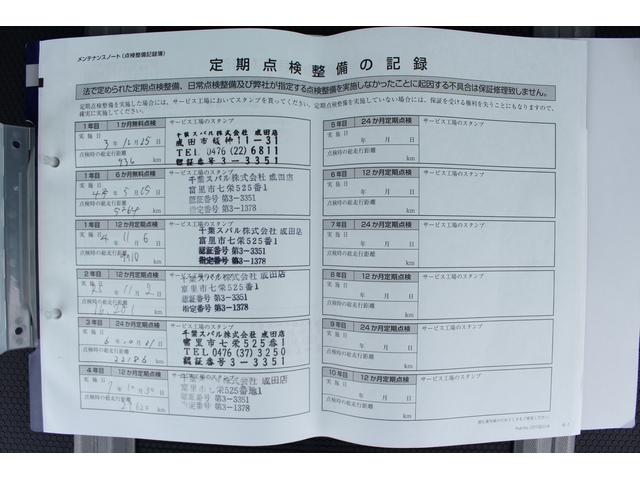 メンテナンスノート（点検整備記録簿）
定期点検整備の記録
法で定められた定期点検整備、日常点検整備及び弊社が指定する点検整備を実施しなかったことに起因する不具合は保証修理致しません。
定期点検整備を実施した場合には、サービス工場においてスタンプを貰ってください。定期点検整備を実施していない場合には、保証を受ける権利を失うことにもなりますので、
確実に実施してください。
1年目 1か月無料点検 サービス工場のスタンプ
実施日 3年10月25日
点検時の総走行距離
936 km
千葉スバル株式会社 成田店
成田市 11-31
TEL 0476 (22) 6811
認証番号 3-3351
1年目 6か月無料点検 サービス工場のスタンプ
実施日 4年5月05日
点検時の総走行距離
5264 km
千葉スバル株式会社 成田店
富里市七栄525番1
認証番号 第3-3351
指定番号 第3-1378
1年目 12か月定期点検 サービス工場のスタンプ
実施日 4年11月6日
点検時の総走行距離
km
千葉スバル株式会社 成田店
富里市七栄525番1
認証番号 第3-3351
指定番号 第3-1378
2年目 12か月定期点検 サービス工場のスタンプ
実施日 年11月2日
点検時の総走行距離
km
千葉スバル株式会社 成田店
富里市七栄525番1
認証番号 第3-3351
指定番号 第3-1378
3年目 24か月定期点検 サービス工場のスタンプ
実施日 6年10月21日
点検時の総走行距離
22186 km
千葉スバル株式会社 成田店
富里市七栄525番1
TEL 0476 (37) 3250
認証番号 3-3351
4年目 12か月定期点検 サービス工場のスタンプ
実施日 7年10月30日
点検時の総走行距離
29620 km
千葉スバル株式会社 成田店
富里市七栄525番地1
認証番号 第3-3351
指定番号 第3-1378
5年目 24か月定期点検 サービス工場のスタンプ
実施日 年 月 日
点検時の総走行距離
km
6年目 12か月定期点検 サービス工場のスタンプ
実施日 年 月 日
点検時の総走行距離
km
7年目 24か月定期点検 サービス工場のスタンプ
実施日 年 月 日
点検時の総走行距離
km
8年目 12か月定期点検 サービス工場のスタンプ
実施日 年 月 日
点検時の総走行距離
km
9年目 24か月定期点検 サービス工場のスタンプ
実施日 年 月 日
点検時の総走行距離
km
10年目 12か月定期点検 サービス工場のスタンプ
実施日 年 月 日
点検時の総走行距離
km